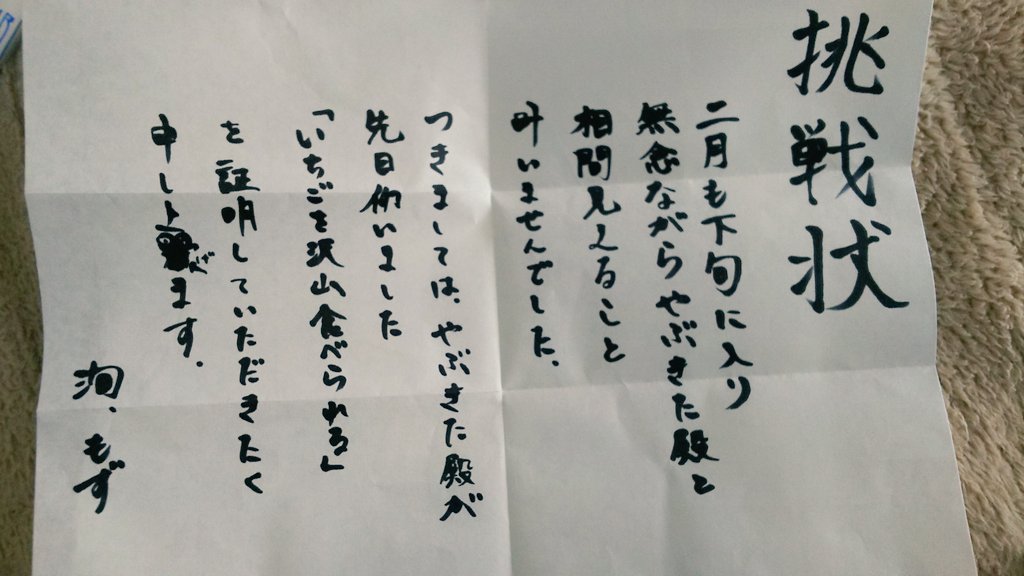 挑戦状
二月も下旬に入り
無念ながらやぶきた殿と
相間見えること
叶いませんでした。
つきましては、やぶきた殿が
先日伺いました
「いちごを沢山食べられる」
を証明していただきたく
申し上げます。
洵、もず